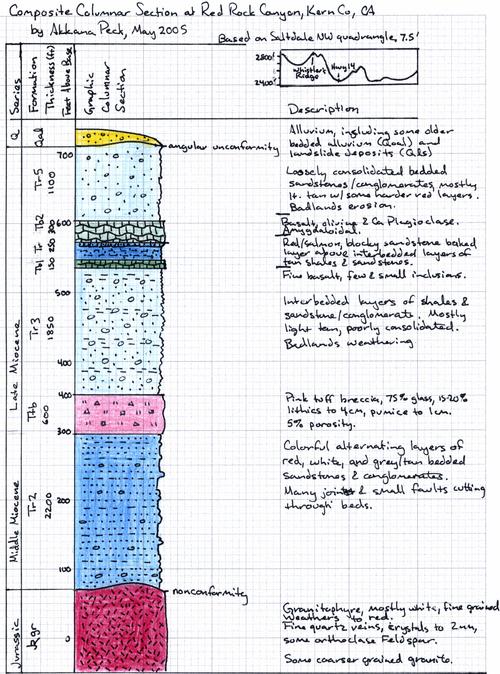 Composite Columnar Section at Red Rock Canyon, Kern Co, CA
by Akkana Peck, May 2005
Based on Saltdale NW quadrangle, 7.5'
2800'
2400'
Whistler Ridge
Hwy 14
Series
Formation
Thickness (ft)
Feet Above Base
Graphic
Columnar
Section
Description
Q
Qal
angular unconformity
Alluvium, including some older
bedded alluvium (Qoal) and
landslide deposits (Qls)
700
Tr5
1100
Loosely consolidated bedded
sandstones/conglomerates, mostly
lt. tan w/some harder red layers.
Badlands erosion.
600
Tb2
Basalt, olivine & Ca Plagioclase.
Amygdaloidal.
Tr
Red/salmon, blocky sandstone baked
layer above interbedded layers of
tan shales & sandstones.
Tb1
Fine basalt, few & small inclusions.
500
Late Miocene
Tr3
1850
Interbedded layers of shales &
sandstone/conglomerate. Mostly
light tan, poorly consolidated.
Badlands weathering
400
400
Ttb
600
Pink tuff breccia, 75% glass, 15-20%
lithics to 4cm, pumice to 1cm.
5% porosity.
300
Middle Miocene
Tr2
2200
Colorful alternating layers of
red, white, and grey/tan bedded
sandstones & conglomerates.
Many joints & small faults cutting
through beds.
200
100
nonconformity
Jurassic
Jkgr
0
Granitaphyre, mostly white, fine grained
weathers to red.
Fine quartz veins, crystals to 2mm,
some orthoclase Feldspar.
Some coarser grained granite.